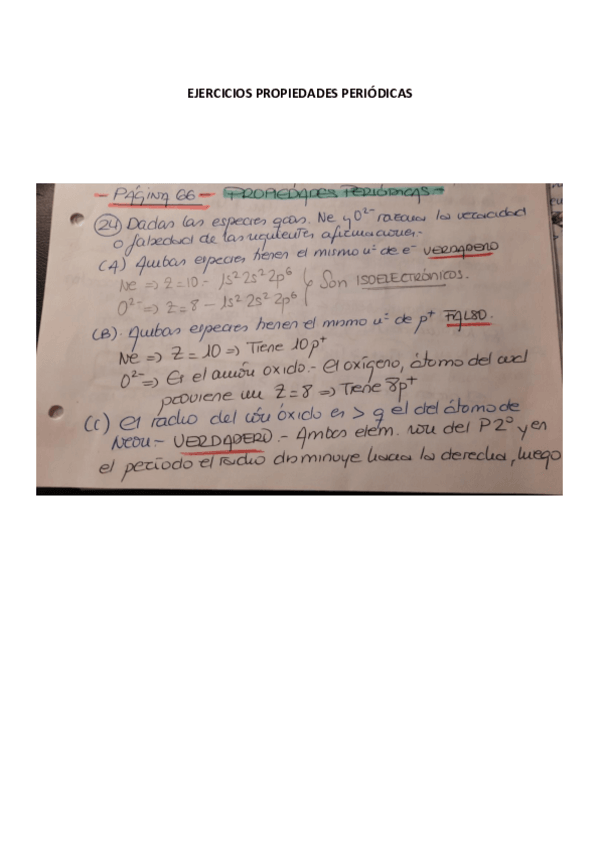 EJERCICIOS PROPIEDADES PERIÓDICAS
- PÁGINA 66 - PROPIEDADES PERIÓDICAS -
24) Dadas las especies gaos. Ne y O²⁻ razona la veracidad
o falsedad de las siguientes afirmaciones.-
(A) Ambas especies tienen el mismo nº de e⁻ VERDADERO
Ne => Z=10 - 1s² 2s² 2p⁶
Son ISOELECTRÓNICOS.
O²⁻ => Z=8 - 1s² 2s² 2p⁶
(B). Ambas especies tienen el mismo nº de p⁺ FALSO.
Ne => Z=10 => Tiene 10p⁺
O²⁻ => Es el anión oxido.- El oxígeno, átomo del cual
proviene un Z=8 => Tiene 8p⁺
(C) El radio del ión óxido es > q el del átomo de
Neon:- VERDADERO.- Ambos elem. son del P2º y en
el período el radio disminuye hacia la derecha, luego